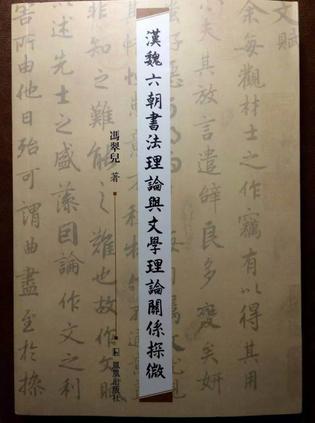 文賦
余每觀材士之作竊有以得其用
夫其放言遣辭良多變矣妍
漢魏六朝書法理論與文學理論關係探微
馮翠兒 著
鳳凰出版社
非知之難能之難也故作文賦
以述先士之盛藻因論作文之利
害所由他日殆可謂曲盡至於操